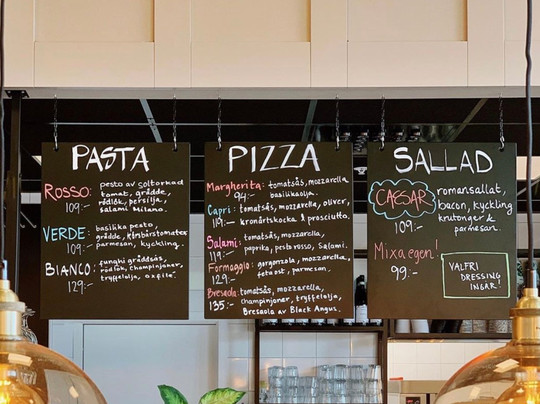 PASTA
ROSSO: pesto av soltorkad
109:- tomat, grädde,
rödlök, persilja,
salami Milano.
VERDE: basilika pesto,
109:- grädde, körsbärstomater
parmesan, kyckling.
BIANCO: funghi gräddsås,
129:- rödlök, champinjoner,
tryffelolja, oxfilé.
PIZZA
Margherita: tomatsås, mozzarella
94:- basilikaolja.
Capri: tomatsås, mozzarella, oliver,
119:- kronärtskocka & prosciutto.
Salami: tomatsås, mozzarella,
119:- paprika, pesto rosso, Salami.
Formaggio: gorgonzola, mozzarella,
129:- fetaost, parmesan.
Bresaola: tomatsås, mozzarella,
135:- champinjoner, tryffelolja,
Bresaola av Black Angus.
SALLAD
CAESAR romansallat,
109:- bacon, kyckling
krutonger &
parmesan.
Mixa egen!
99:-
VALFRI
DRESSING
INGÅR!